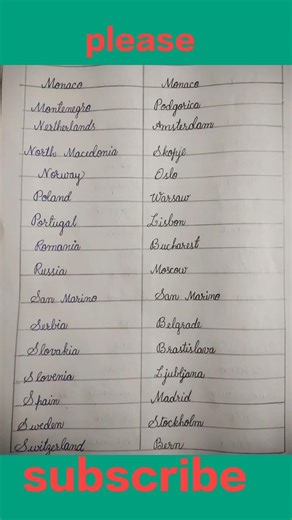 please
Monaco Monaco
Montenegro Podgorica
Nertherlands Amsterdam
North Macedonia Skopje
Norway Oslo
Poland Warsaw
Portugal Lisbon
Romania Bucharest
Russia Moscow
San Marino San Marino
Serbia Belgrade
Slovakia Brastislava
Slovenia Ljubljana
Spain Madrid
Sweden Stockholm
Switzerland Bern
subscribe